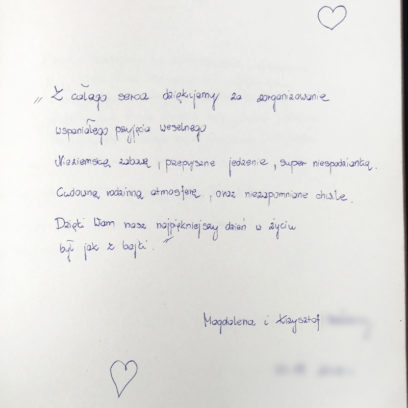 „ Z całego serca dziękujemy za zorganizowanie
wspaniałego przyjęcia weselnego
Nieziemską zabawę, przepyszne jedzenie, super niespodziankę.
Cudowną rodzinną atmosferę, oraz niezapomniane chwile.
Dzięki Wam nasz najpiękniejszy dzień w życiu
był jak z bajki. ”
Magdalena i Krzysztof